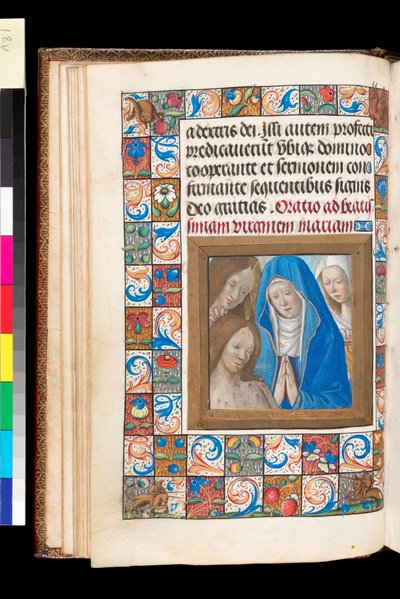 a dextris dei. Illi autem profecti
predicauerūt vbiqꝫ domino
cooperante et sermonem con
firmante sequentibus signis
Deo gratias. Oratio ad beatis
simam virginem mariam
18v